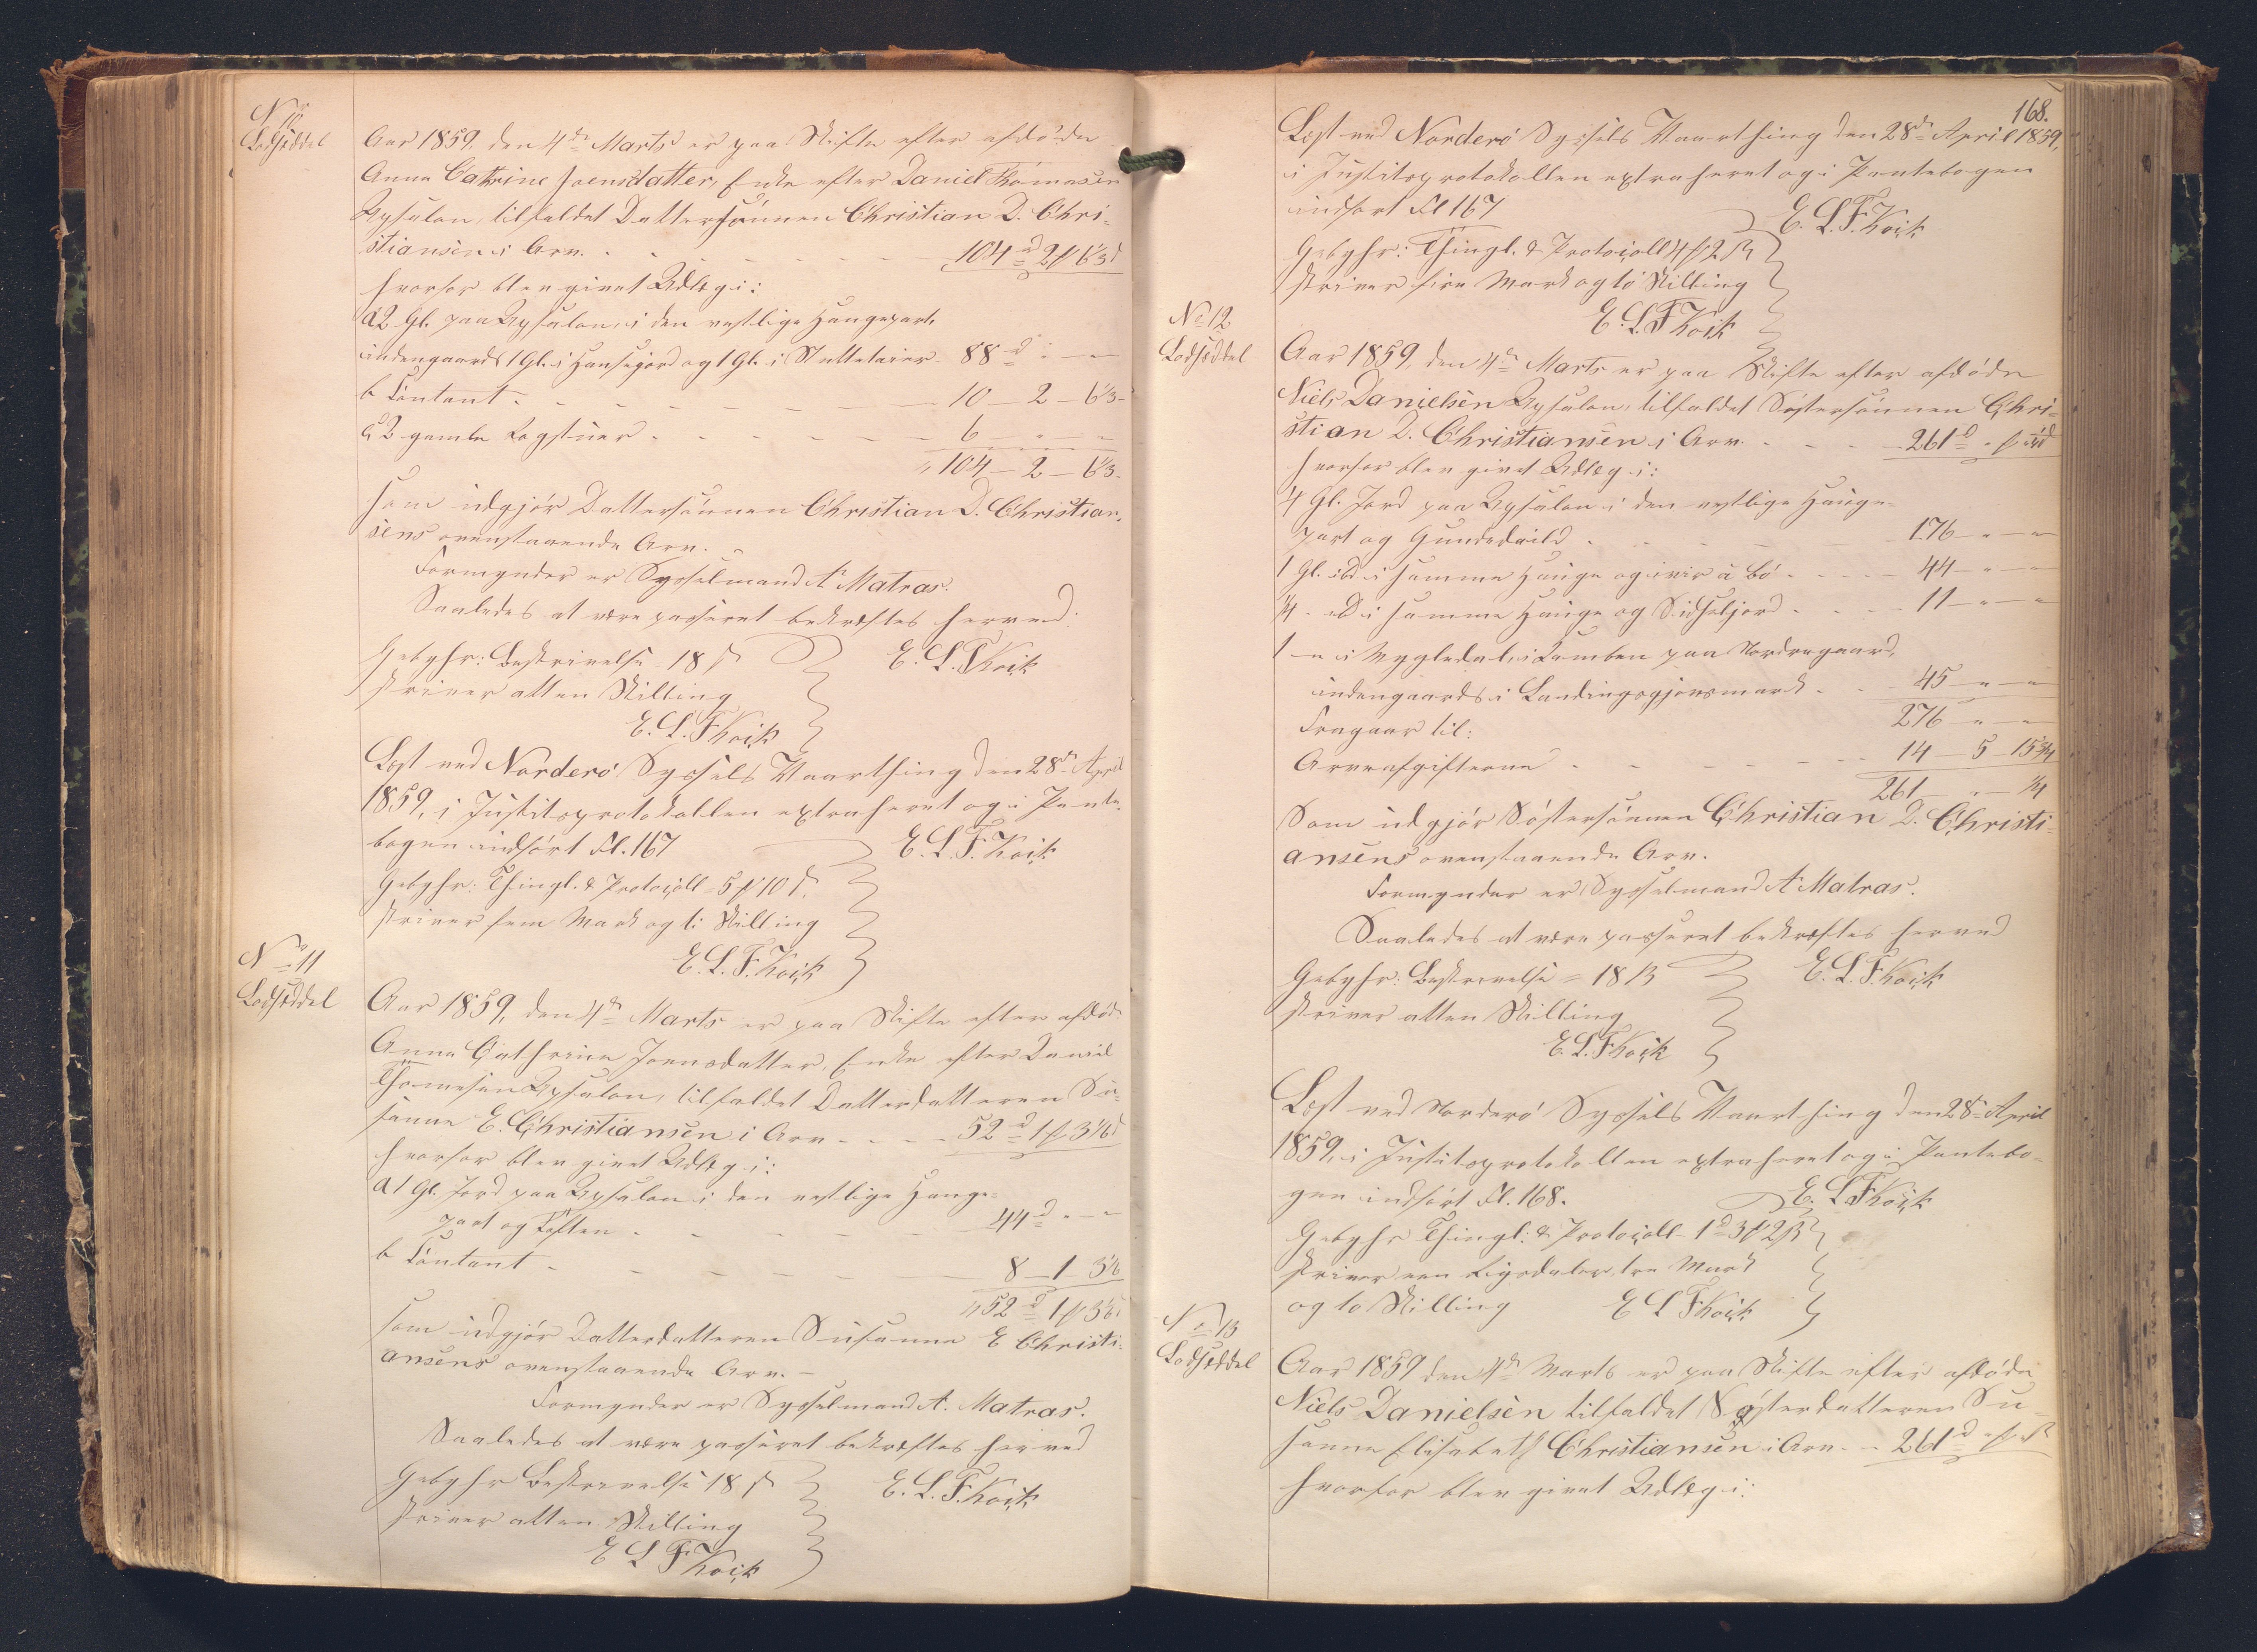 No 10
Lodseddel
Aar 1859, den 4de Marts er paa Skifte efter afdøde
Anna Cathrine Joensdatter, Enke efter Daniel Thomasen
Uphsalen, tilfaldet Dattersønnen Christian D. Chri-
stiansen i Arv. 104 d 2 ƒ 6⅓ d
hvorfor blev givet Udlæg i:
a 2 Gl. paa Uphsalen, i den vestlige Haugepart,
indengaards 1 Gl. i Hansegjord og 1 Gl. i 88 d " "
b Contant 10 – 2 – 6⅓ –
c, 2 gamle Rogstuer 6 – " – "
" 104 – 2 – 6⅓ –
som udgjør Dattersønnen Christian D. Christian-
sens ovenstaaende Arv.
Formynder er Sysselmand A. Matras.
Saaledes at være passeret bekræftes herved:
Gebyhr: Beskrivelse 18 ß E. L. F. Koch
skriver atten Skilling
E. L. F. Koch
Læst ved Norderø Syssels Vaarthing den 28de April
1859, i Justitsprotokollen extraheret og i Pante-
bogen indført Fl. 167 E. L. F. Koch
Gebyhr: Thingl. & Protocoll = 5 ƒ 10 ß.
skriver fem Mark og ti Skilling
E. L. F. Koch
No 11
Lodseddel
Aar 1859, den 4de Marts er paa Skifte efter afdøde
Anna Cathrine Joensdatter, Enke efter Daniel
Thomesen Uphsalen, tilfaldet Datterdatteren Su-
sanne E. Christiansen i Arv 52 d 1 ƒ 3⅙ d
hvorfor blev givet Udlæg i:
a 1 Gl. Jord paa Uphsalen i den vestlige Hauge-
part og Toften 44 d " "
b Contant 8 – 1 – 3⅙
" 52 d 1 ƒ 3⅙
som udgjør Datterdatteren Susanne E Christi-
ansens ovenstaaende Arv. –
Formynder er Sysselmand A. Matras.
Saaledes at være passeret bekræftes herved
Gebyhr Beskrivelse 18 ß E. L. F. Koch
skriver atten Skilling
E L F Koch
168.
Læst ved Norderø Syssels Vaarthing den 28de April 1859,
i Justitsprotokollen extraheret og i Pantebogen
indført Fl 167 E. L. F. Koch
Gebyhr: Thingl. & Protocoll 4 ƒ 2 ß
skriver fire Mark og to Skilling
E. L. F Koch
No 12
Lodseddel
Aar 1859, den 4de Marts er paa Skifte efter afdøde
Niels Danielsen Uphsalen, tilfaldet Søstersønnen Chri-
stian D. Christiansen i Arv. 261 d " ƒ
hvorfor blev givet Udlæg i:
4 Gl. Jord paa Uphsalen i den vestlige Hauge-
part og 176 – " – "
1 Gl. i samme Hauge og 44 – " – "
¼ – i samme Hauge og 11 – " – "
1 – " i paa Nordregaard,
indengaards i 45 – " – "
276 – " – "
Fragaar til:
Arveafgifterne 14 – 5 – 15¾
261 – " – ¼
Som udgjør Søstersønnen Christian D. Christi-
ansens ovenstaaende Arv.
Formynder er Sysselmand A. Matras.
Saaledes at være passeret bekræftes herved
Gebyhr: Beskrivelse = 18 ß E. L. F. Koch
skriver atten Skilling
E. L. F Koch
Læst ved Norderø Syssels Vaarthing den 28de April
1859, i Justitsprotokollen extraheret og i Pantebo-
gen indført Fl. 168. E. L F Koch
Gebyhr Thingl: & Protocoll – 1 d 3 ƒ 2 ß
skriver een Rigsdaler, tre Mark
og to Skilling E L F Koch
No 13
Lodseddel
Aar 1859 den 4de Marts er paa Skifte efter afdøde
Niels Danielsen tilfaldet Søsterdatteren Su-
sanne Elisabeth Christiansen i Arv 261 d " ƒ
hvorfor blev givet Udlæg i: